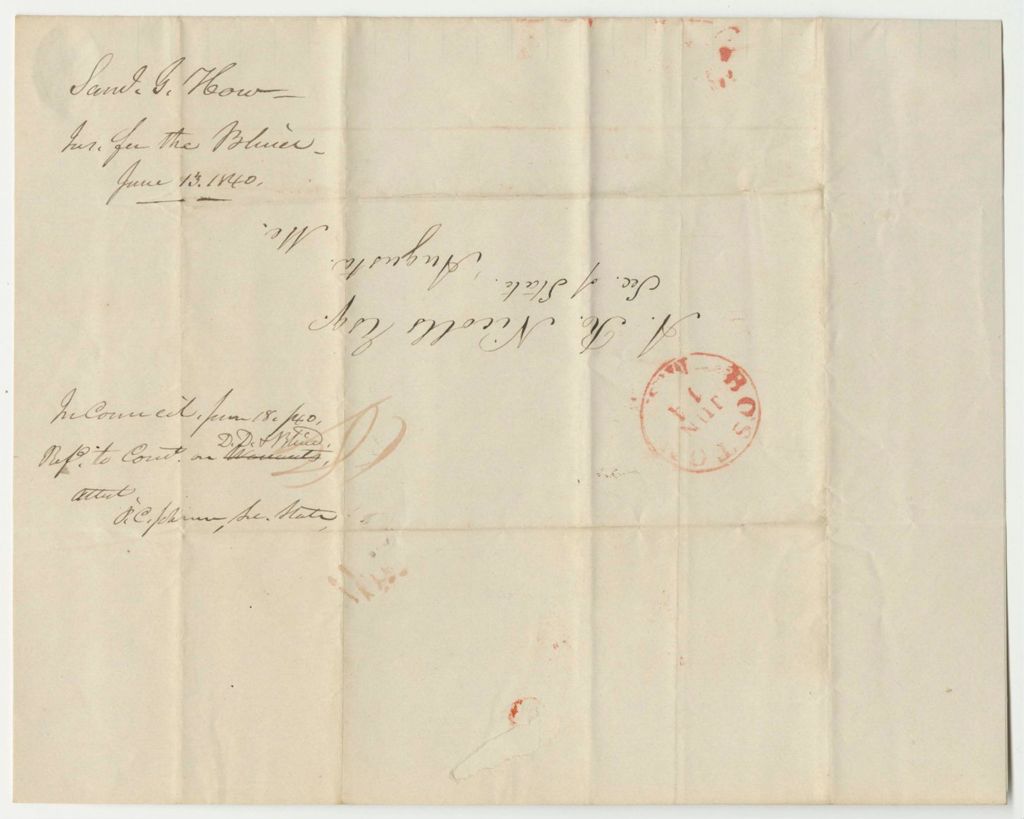 Saml. G. How
Ins. for the Blind
June 13. 1840.
Me.
Augusta.
Sec. of State.
A. R. Nicolls Esq.
BOSTON
JUN
14
In Council, June 18, 1840.
D. D. & Blind.
Refd. to Comt. on Warrants,
attest
P. C. Johnson, Sec. State,